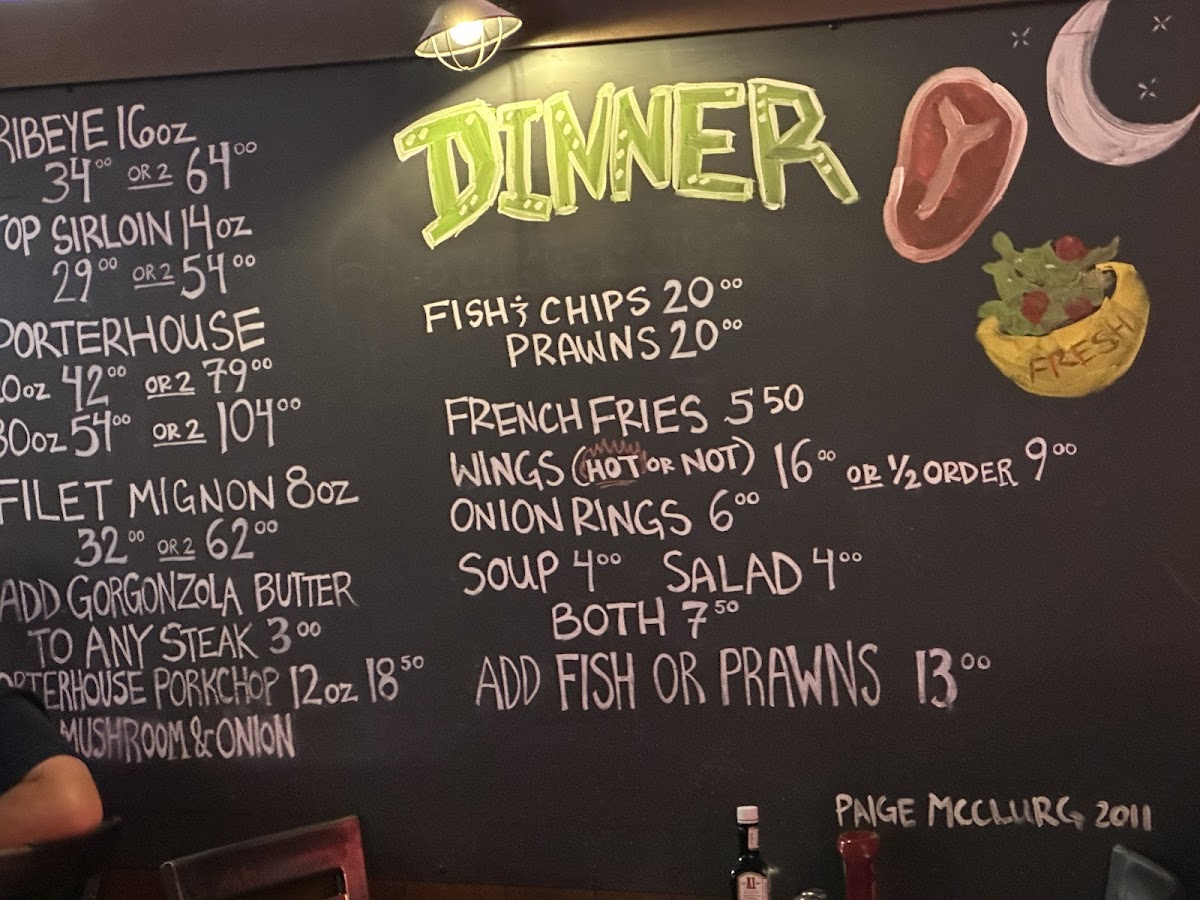 RIBEYE 16oz
34⁰⁰ OR 2 64⁰⁰
TOP SIRLOIN 14oz
29⁰⁰ OR 2 54⁰⁰
PORTERHOUSE
42⁰⁰ OR 2 79⁰⁰
30oz 54⁰⁰ OR 2 104⁰⁰
FILET MIGNON 8oz
32⁰⁰ OR 2 62⁰⁰
ADD GORGONZOLA BUTTER
TO ANY STEAK 3⁰⁰
PORTERHOUSE PORKCHOP 12oz 18⁵⁰
MUSHROOM & ONION
DINNER
FISH & CHIPS 20⁰⁰
PRAWNS 20⁰⁰
FRENCH FRIES 5⁵⁰
WINGS (HOT OR NOT) 16⁰⁰ OR ½ ORDER 9⁰⁰
ONION RINGS 6⁰⁰
SOUP 4⁰⁰ SALAD 4⁰⁰
BOTH 7⁵⁰
ADD FISH OR PRAWNS 13⁰⁰
FRESH!
PAIGE MCCLURG 2011
A1